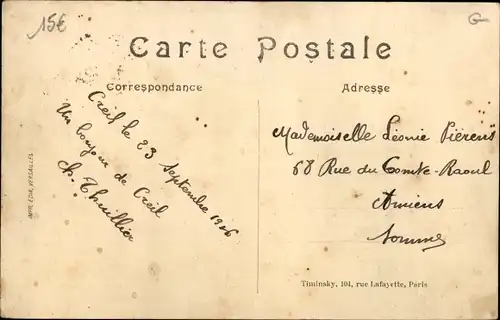 15€
G
Carte Postale
Correspondance
Adresse
Creil le 23 Septembre 1906
Un bonjour de Creil
Ch. Thuillier
Mademoiselle Léonie Piérens
68 Rue du Comte-Raoul
Amiens
Somme
IMPR. EDIA, VERSAILLES
Timinsky, 104, rue Lafayette, Paris